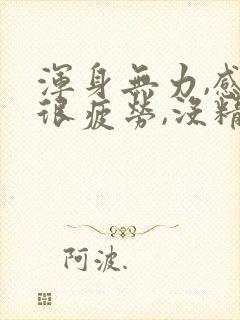 渾身無力,感
很疲勞,沒精
阿波.